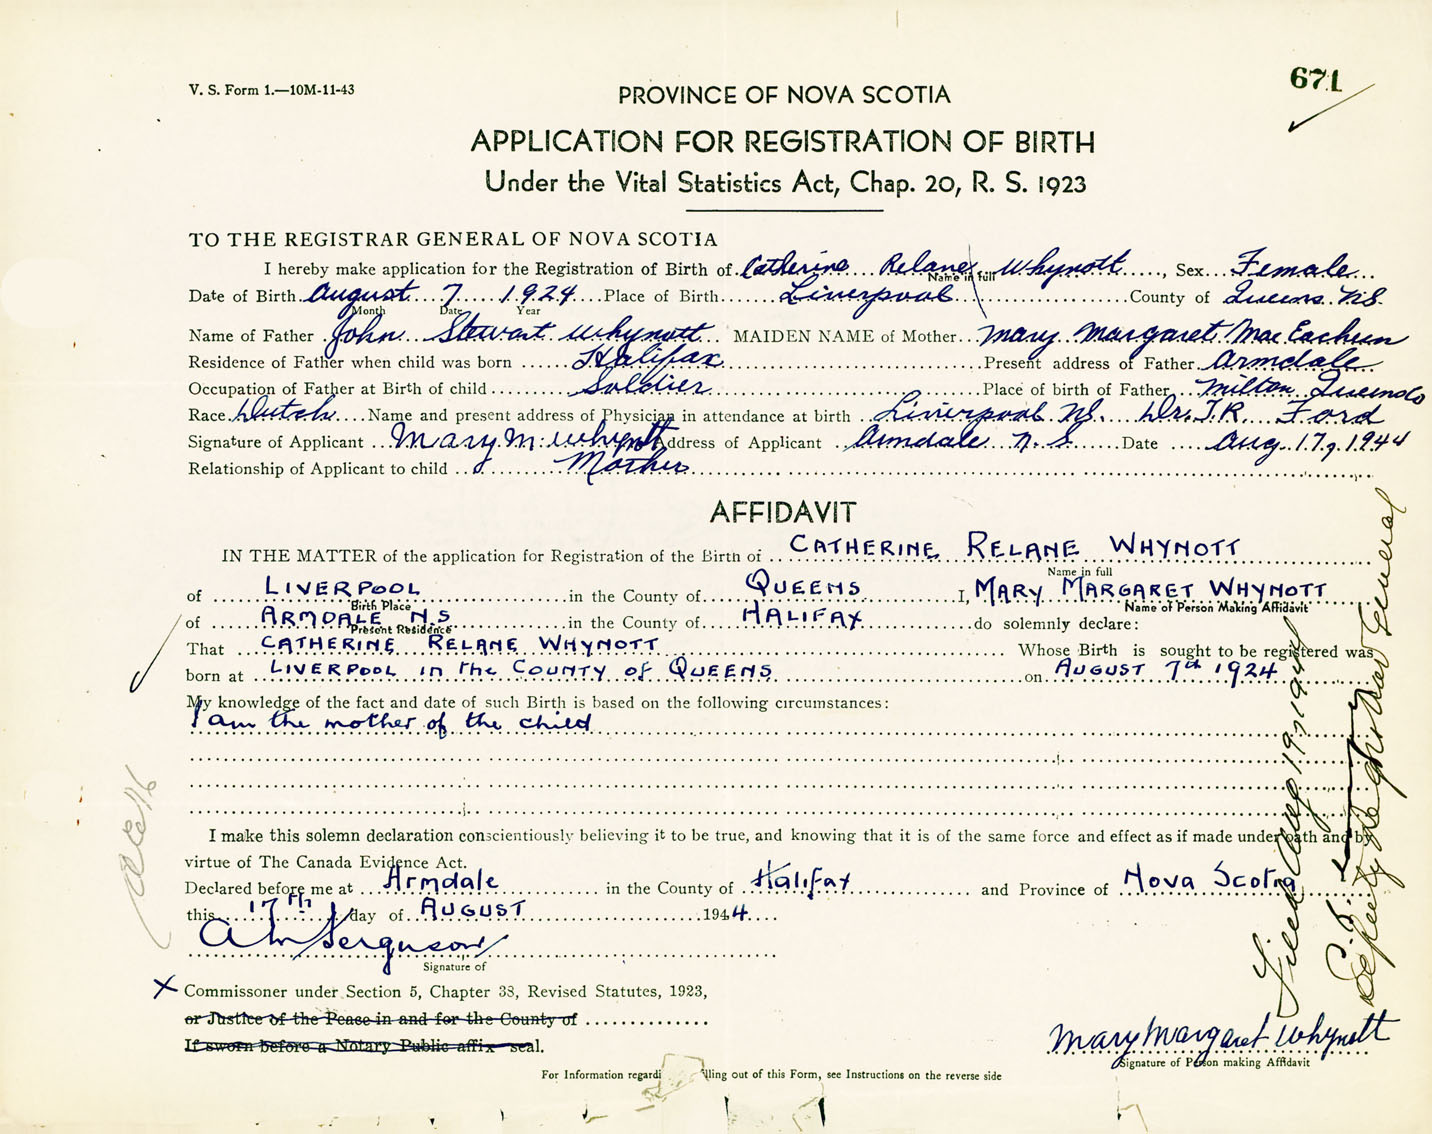 V. S. Form 1.—10M-11-43
671
PROVINCE OF NOVA SCOTIA
APPLICATION FOR REGISTRATION OF BIRTH
Under the Vital Statistics Act, Chap. 20, R. S. 1923
TO THE REGISTRAR GENERAL OF NOVA SCOTIA
I hereby make application for the Registration of Birth of Catherine Relane Whynott, Sex Female
Name in full
Date of Birth August 7 1924 Place of Birth Liverpool County of Queens N.S.
Month Date Year
Name of Father John Stewart Whynott MAIDEN NAME of Mother Mary Margaret MacEachern
Residence of Father when child was born Halifax Present address of Father Armdale
Occupation of Father at Birth of child Soldier Place of birth of Father Milton Queens Co
Race Dutch Name and present address of Physician in attendance at birth Liverpool N.S. Dr. J.R. Ford
Signature of Applicant Mary M. Whynott Address of Applicant Armdale N.S. Date Aug. 17, 1944
Relationship of Applicant to child Mother
AFFIDAVIT
IN THE MATTER of the application for Registration of the Birth of CATHERINE RELANE WHYNOTT
Name in full
of LIVERPOOL in the County of QUEENS I, MARY MARGARET WHYNOTT
Birth Place Name of Person Making Affidavit
of ARMDALE N.S in the County of HALIFAX do solemnly declare:
Present Residence
That CATHERINE RELANE WHYNOTT Whose Birth is sought to be registered was
born at LIVERPOOL in the COUNTY of QUEENS on AUGUST 7th 1924
My knowledge of the fact and date of such Birth is based on the following circumstances:
I am the mother of the child
I make this solemn declaration conscientiously believing it to be true, and knowing that it is of the same force and effect as if made under oath and by
virtue of The Canada Evidence Act.
Declared before me at Armdale in the County of Halifax and Province of Nova Scotia
this 17th day of AUGUST 1944
A M Ferguson
Signature of
X Commissoner under Section 5, Chapter 38, Revised Statutes, 1923,
or Justice of the Peace in and for the County of
If sworn before a Notary Public affix seal.
Mary Margaret Whynott
Signature of Person making Affidavit
For Information regardi lling out of this Form, see Instructions on the reverse side
Filed Aug 19, 1944
Deputy Registrar General